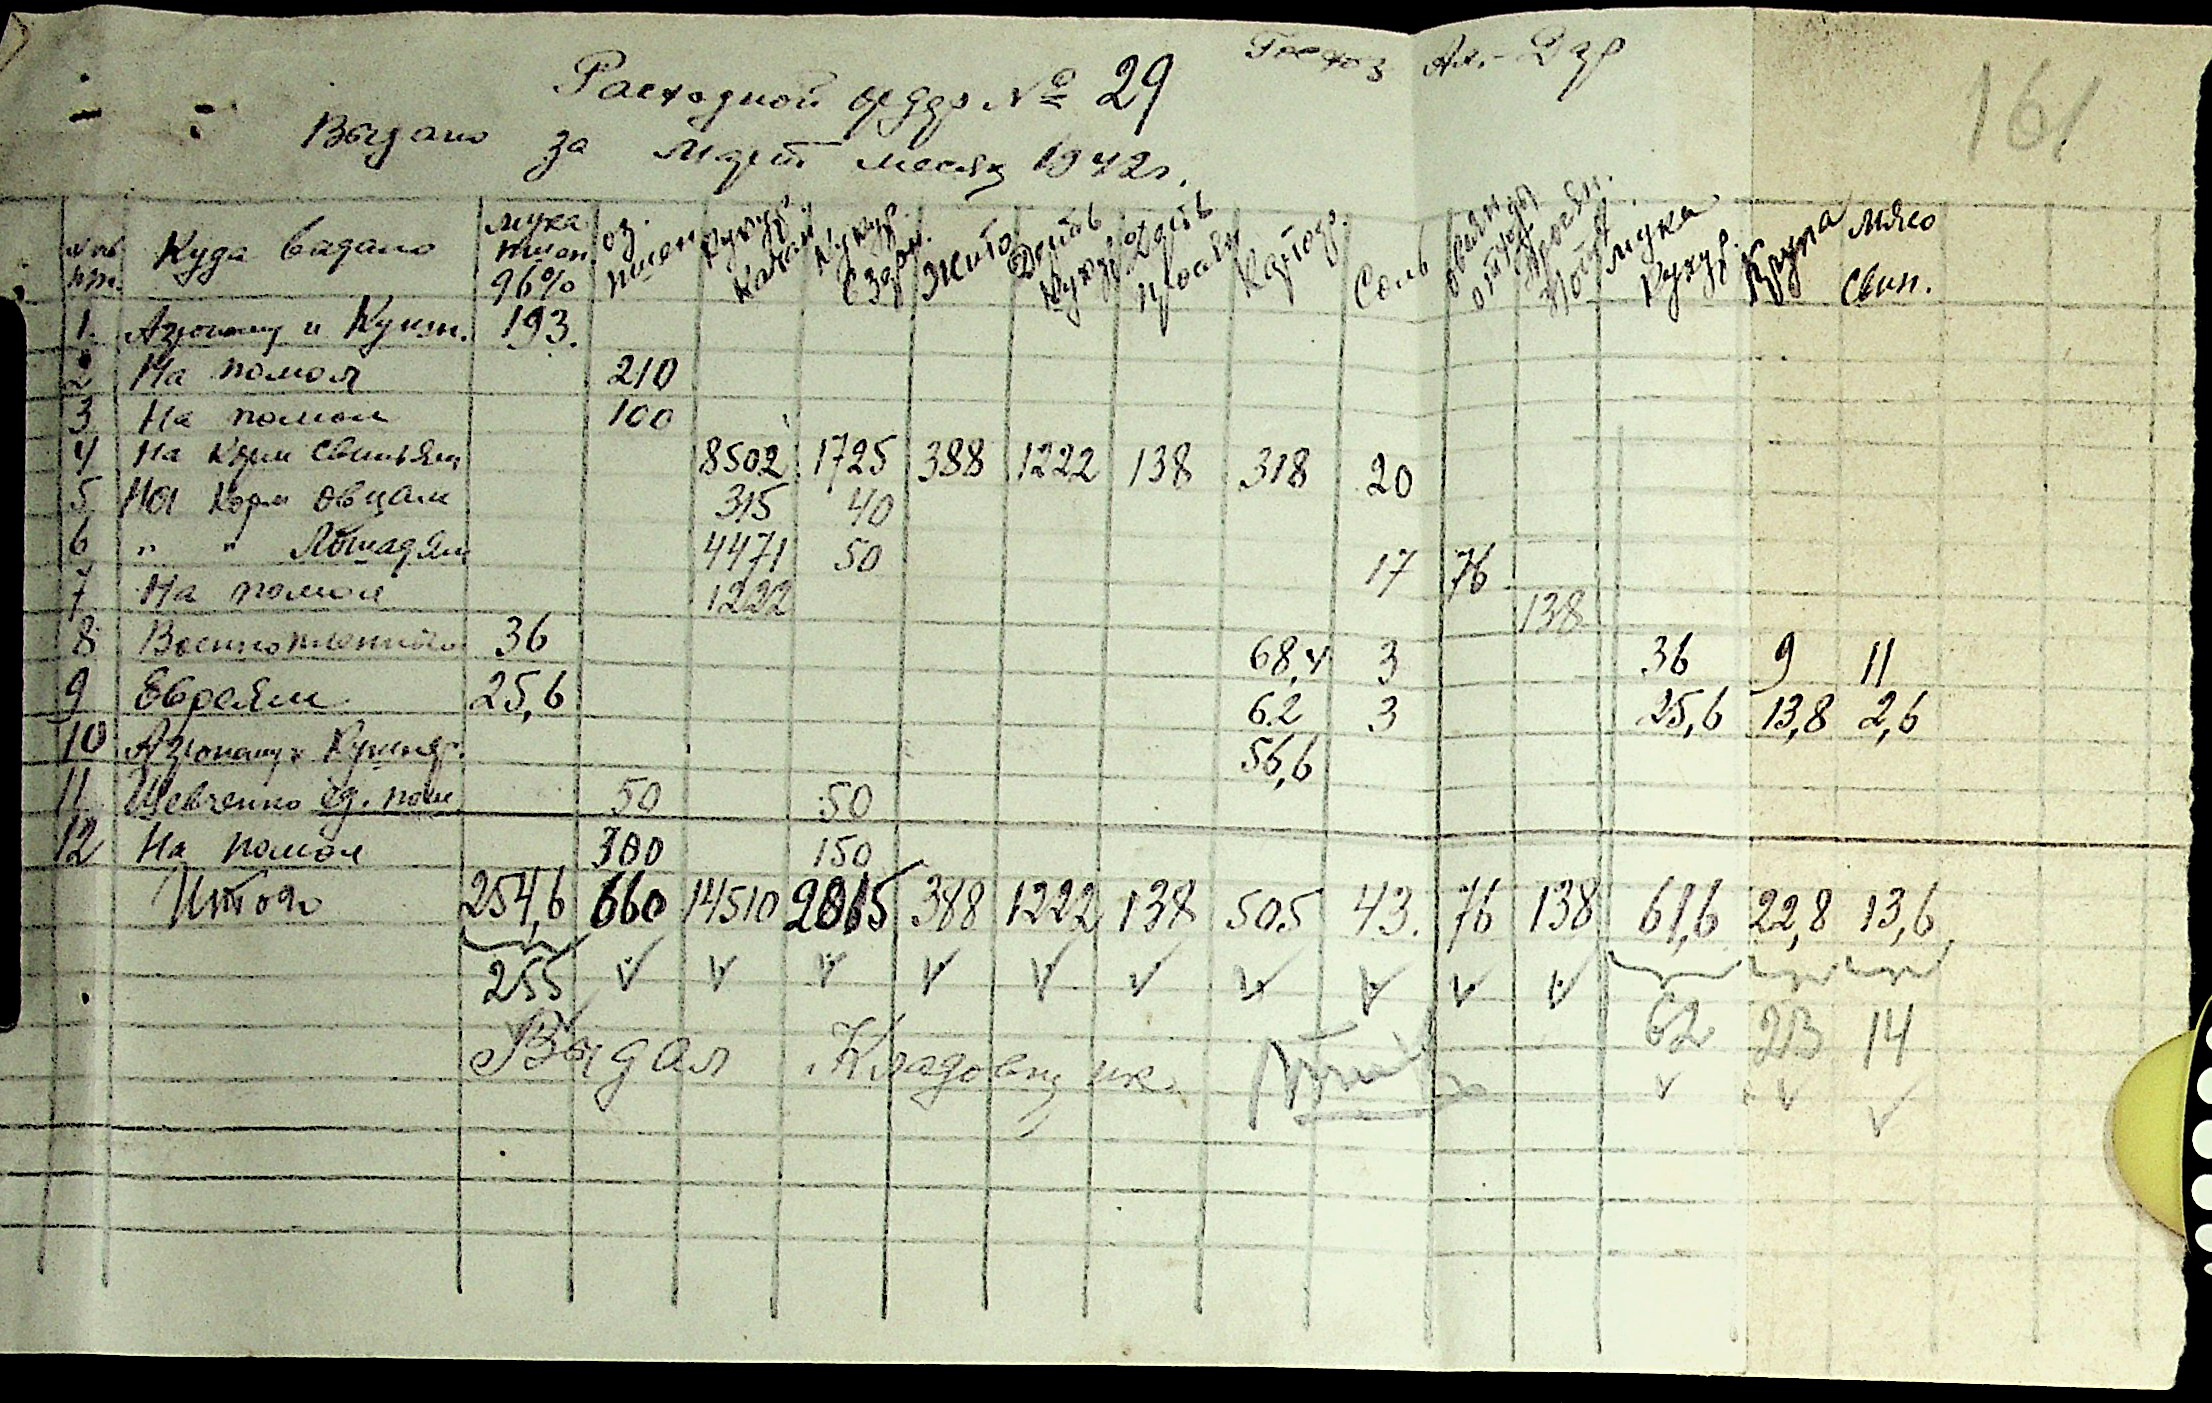 Госхоз Ак.-Дар
161
Расходной ордр № 29
Выдано за март месяц 1942г.
№ пп. Куда видано мука пшен. 96% оз. пшен. кукур. качан. кукур. в зерн. жито Дерть кукур. Дерть просян. картоф. Соль мука кукур. Крупа мясо свин.
1. и Кухн. 193.
2 На помол 210
3 На помол 100
4 На корм свиньям 8502 1725 388 1222 138 318 20
5 На корм овцам 315 40
6 " " Лошадям 4471 50 17 76
7 На помол 1222 138
8 Военнопленным 36 68,4 3 36 9 11
9 Евреям 25,6 62 3 25,6 13,8 2,6
10 56,6
11 Шевченко 50 50
12 На помол 300 150
Итого 254,6 660 14510 2015 388 1222 138 505 43. 76 138 61,6 22,8 13,6
255 62 23 14
Выдал Кладовщик